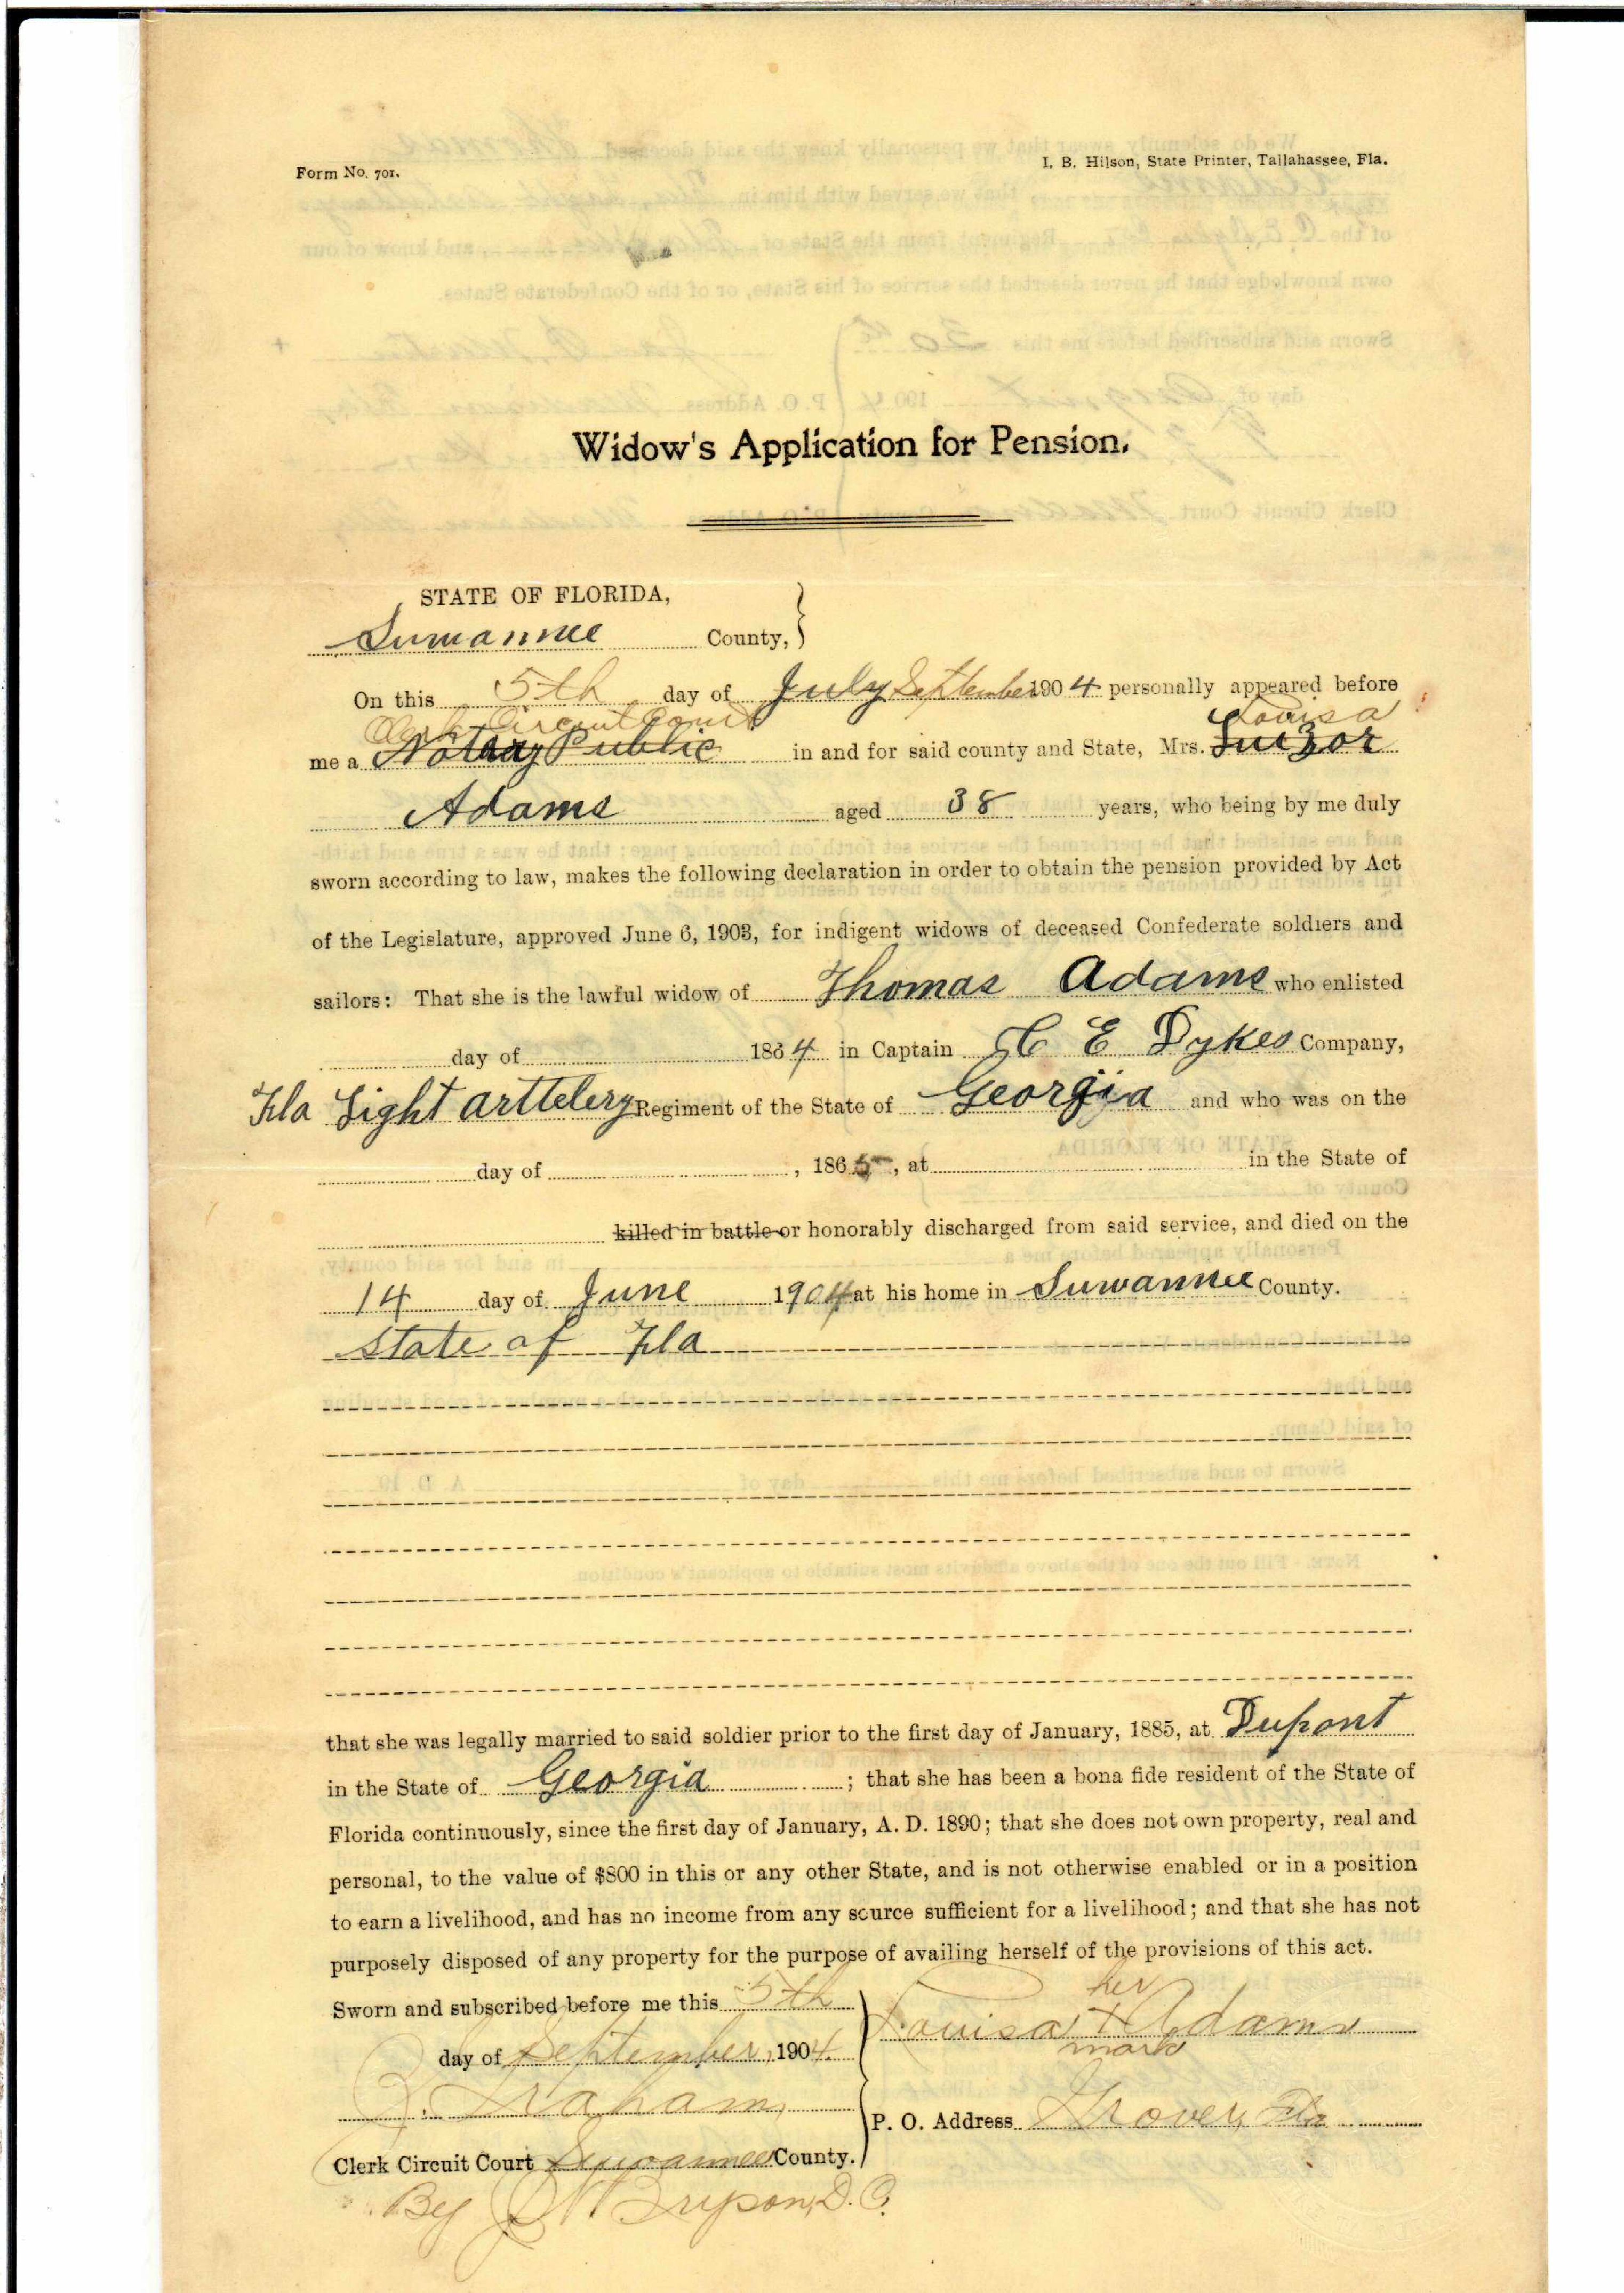 Form No. 701.
I. B. Hilson, State Printer, Tallahassee, Fla.
Widow's Application for Pension.
STATE OF FLORIDA,
Suwannee County,
On this 5th day of July September 1904 personally appeared before
Clerk Circuit Court Louisa
me a Notary Public in and for said county and State, Mrs. Luizor
Adams aged 38 years, who being by me duly
sworn according to law, makes the following declaration in order to obtain the pension provided by Act
of the Legislature, approved June 6, 1903, for indigent widows of deceased Confederate soldiers and
sailors: That she is the lawful widow of Thomas Adams who enlisted
day of 1864 in Captain C E Dykes Company,
Fla Light arttelery Regiment of the State of Georgia and who was on the
day of , 1865, at in the State of
killed in battle or honorably discharged from said service, and died on the
14 day of June 1904 at his home in Suwannee County.
state of Fla
that she was legally married to said soldier prior to the first day of January, 1885, at Dupont
in the State of Georgia ; that she has been a bona fide resident of the State of
Florida continuously, since the first day of January, A. D. 1890; that she does not own property, real and
personal, to the value of $800 in this or any other State, and is not otherwise enabled or in a position
to earn a livelihood, and has no income from any source sufficient for a livelihood; and that she has not
purposely disposed of any property for the purpose of availing herself of the provisions of this act.
Sworn and subscribed before me this 5th
her
Louisa + Adams
mark
day of September, 1904.
Graham,
P. O. Address Grover, Fla
Clerk Circuit Court Suwannee County.
By Bryson, D. C.